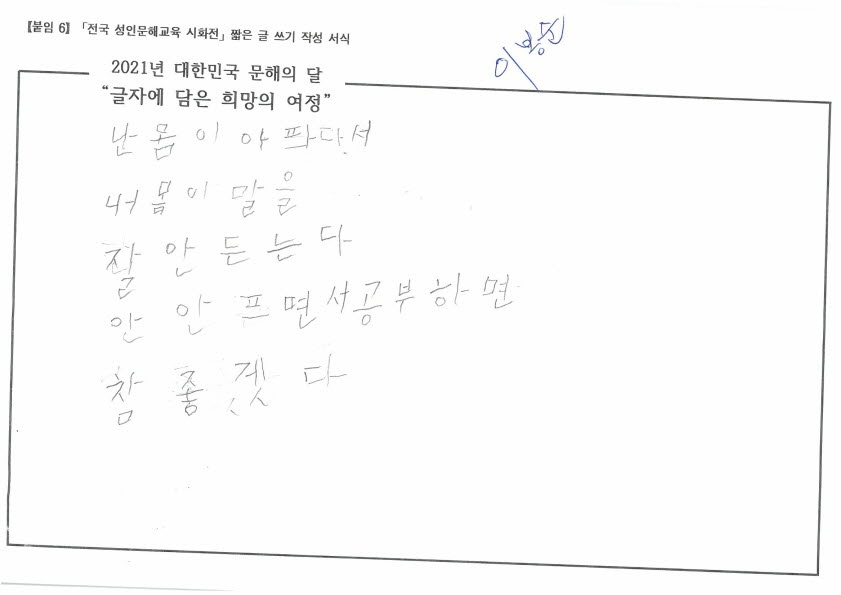 【붙임 6】「전국 성인문해교육 시화전」 짧은 글 쓰기 작성 서식
2021년 대한민국 문해의 달
“글자에 담은 희망의 여정”
난 몸이 아 프다.서
내 몸이 말을
잘 안 든 는 다
안 안 프 면 서 공 부 하 면
참 좋 겟 다